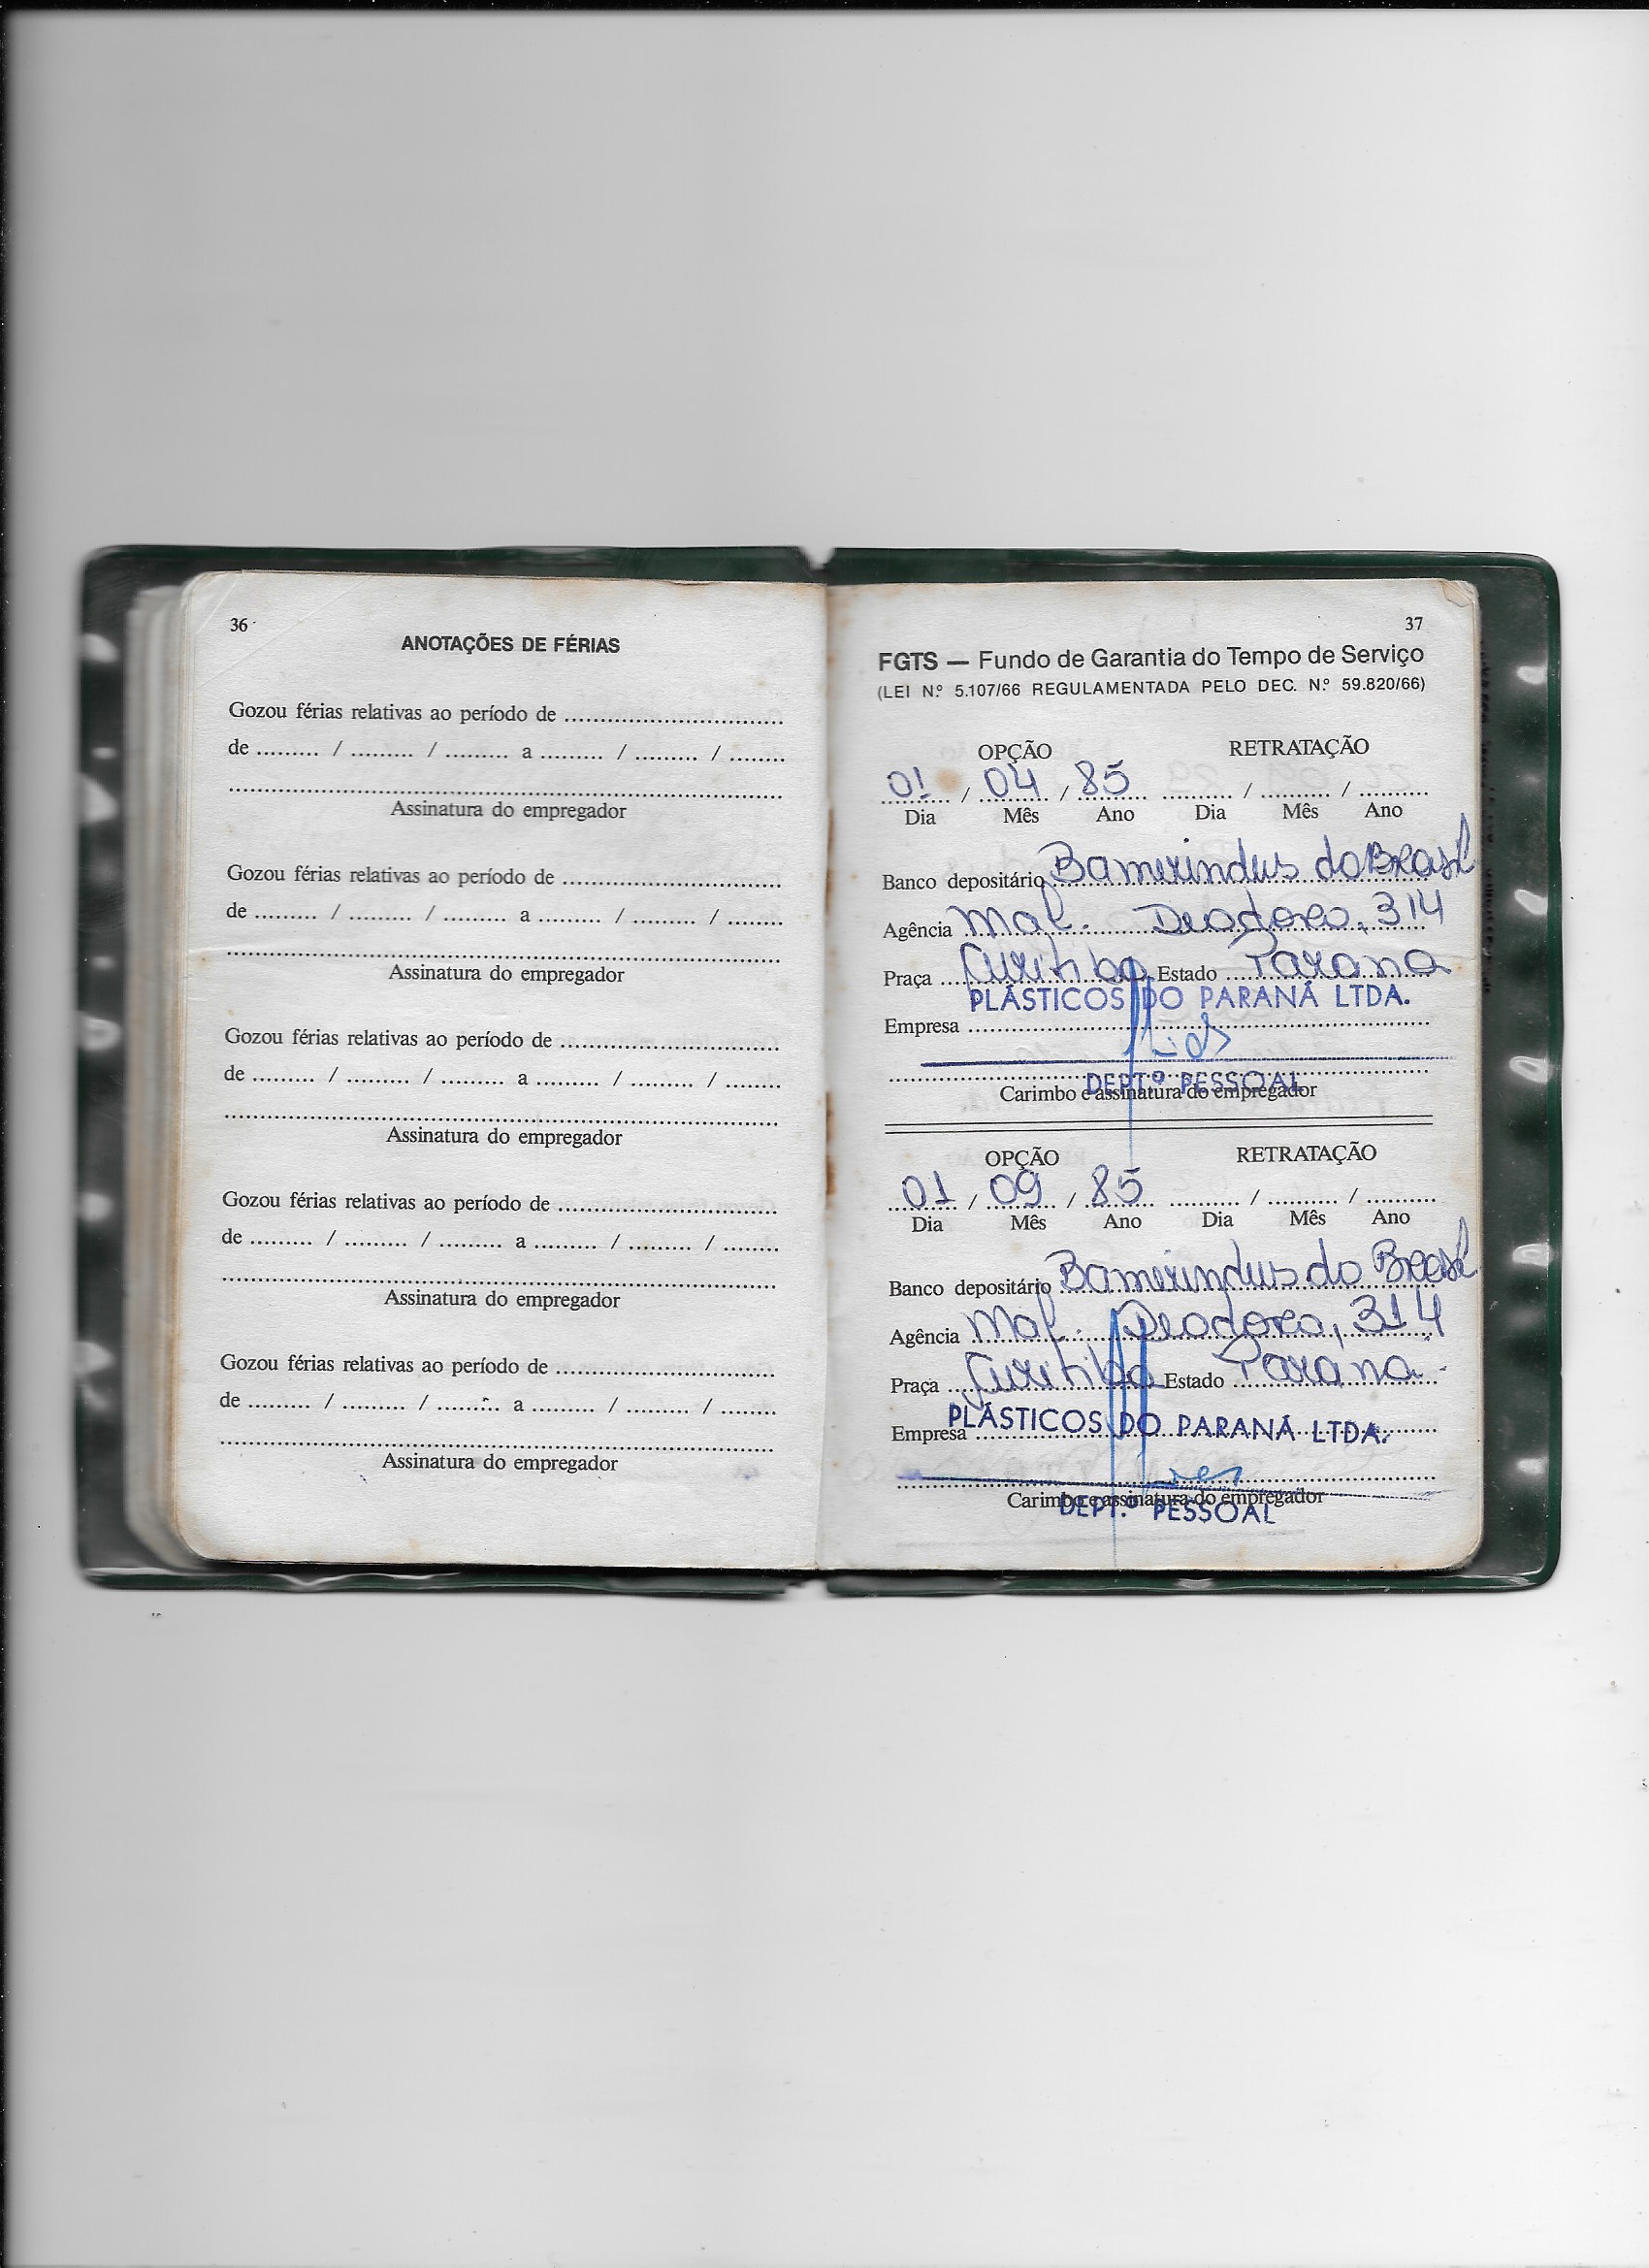 36
ANOTAÇÕES DE FÉRIAS
Gozou férias relativas ao período de ..............................
de ......... / ......... / ......... a ......... / ......... / ........
Assinatura do empregador
Gozou férias relativas ao período de ..............................
de ......... / ......... / ......... a ......... / ......... / ........
Assinatura do empregador
Gozou férias relativas ao período de ..............................
de ......... / ......... / ......... a ......... / ......... / ........
Assinatura do empregador
Gozou férias relativas ao período de ..............................
de ......... / ......... / ......... a ......... / ......... / ........
Assinatura do empregador
Gozou férias relativas ao período de ..............................
de ......... / ......... / ......... a ......... / ......... / ........
Assinatura do empregador
37
FGTS — Fundo de Garantia do Tempo de Serviço
(LEI N.º 5.107/66 REGULAMENTADA PELO DEC. N.º 59.820/66)
OPÇÃO RETRATAÇÃO
01 / 04 / 85 ......... / ......... / .........
Dia Mês Ano Dia Mês Ano
Banco depositário Bamerindus do Brasil
Agência Mal. Deodoro, 314
Praça Curitiba Estado Parana
PLÁSTICOS DO PARANÁ LTDA.
Empresa
DEPT.º PESSOAL
Carimbo e assinatura do empregador
OPÇÃO RETRATAÇÃO
01 / 09 / 85 ......... / ......... / .........
Dia Mês Ano Dia Mês Ano
Banco depositário Bamerindus do Brasil
Agência Mal. Deodoro, 314
Praça Curitiba Estado Parana
PLÁSTICOS DO PARANÁ LTDA.
Empresa
Carimbo e assinatura do empregador
DEPT.º PESSOAL